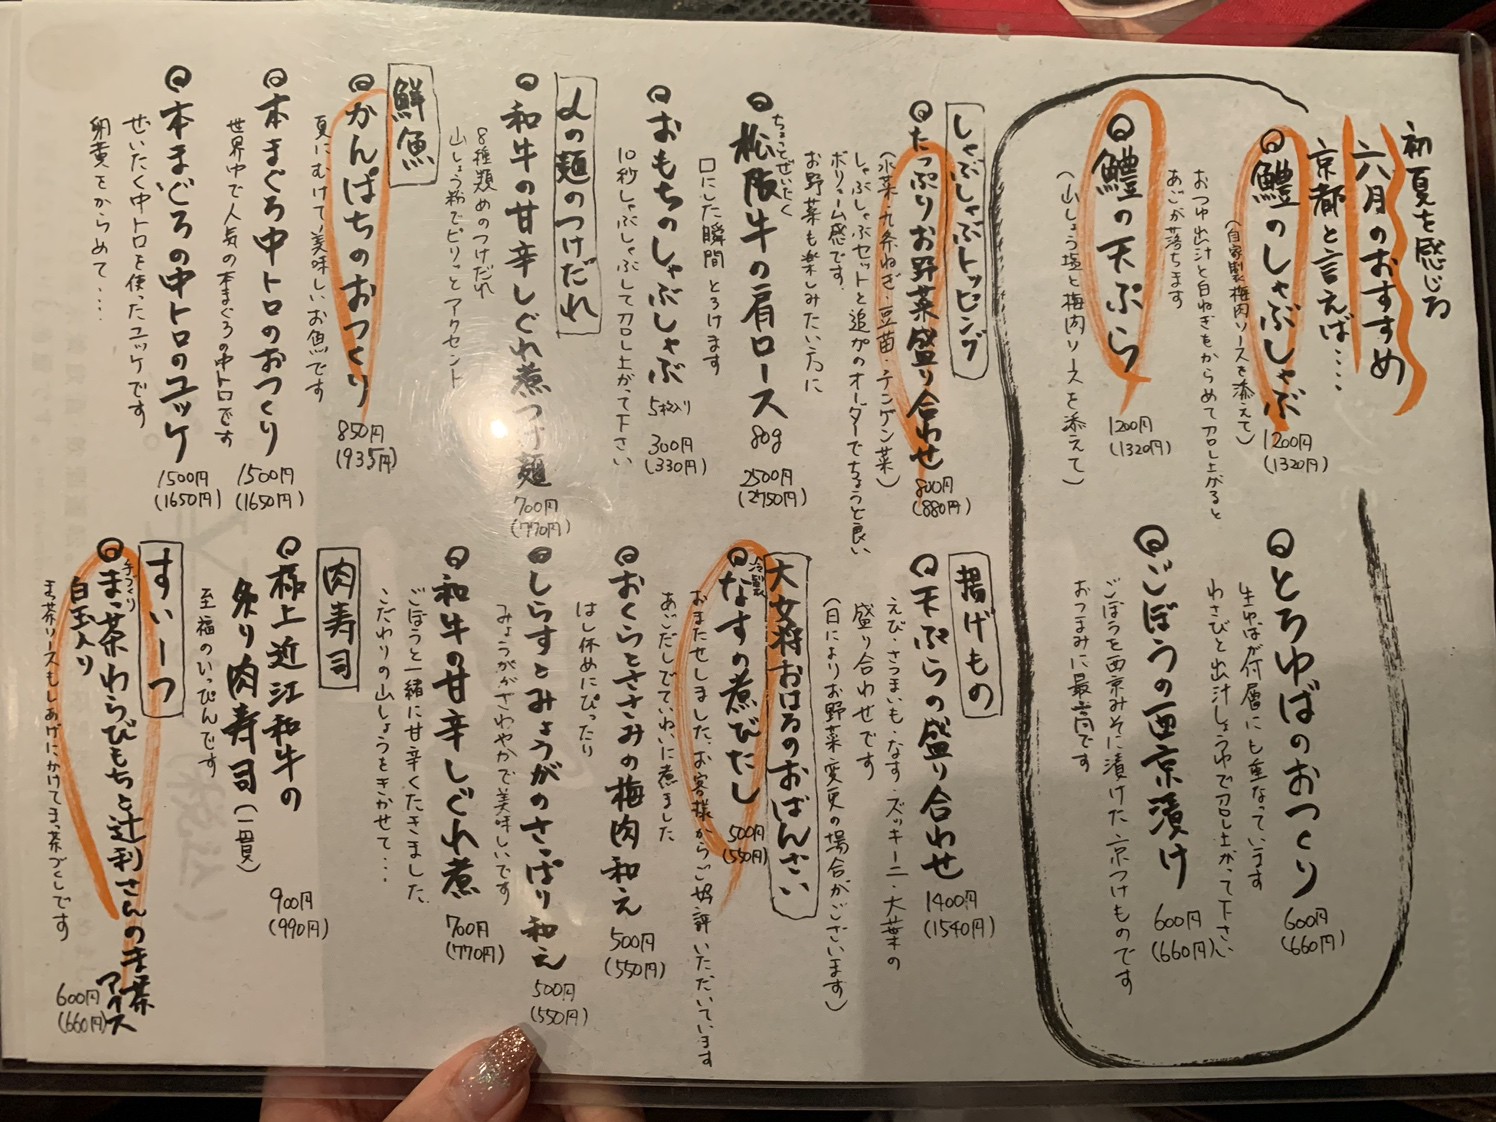 初夏を感じる
六月のおすすめ
京都と言えば・・・・
鱧のしゃぶしゃぶ
1200円
(1320円)
(自家製梅肉ソースを添えて)
おつゆ出汁と白ねぎをからめて召し上がると
あごが落ちます
鱧の天ぷら
1200円
(1320円)
(山しょう塩と梅肉ソースを添えて)
とろゆばのおつくり
600円
(660円)
生ゆばが何層にも重なっています
わさびと出汁しょうゆで召し上がって下さい
ごぼうの西京漬け
600円
(660円)
ごぼうを西京みそに漬けた京つけものです
おつまみに最高です
しゃぶしゃぶトッピング
たっぷりお野菜盛り合わせ
800円
(880円)
(水菜・九条ねぎ・豆苗・チンゲン菜)
しゃぶしゃぶセットと追加のオーダーでちょうど良い
ボリューム感です。
お野菜も楽しみたい方に
ちょっとぜいたく
松阪牛の肩ロース 80g
2500円
(2750円)
口にした瞬間とろけます
おもちのしゃぶしゃぶ 5枚入り
300円
(330円)
10秒しゃぶしゃぶして召し上がって下さい
〆の麺のつけだれ
和牛の甘辛しぐれ煮つけ麺
700円
(770円)
8種類めのつけだれ
山しょう粉でピリッとアクセント
鮮魚
かんぱちのおつくり
850円
(935円)
夏にむけて美味しいお魚です
本まぐろ中トロのおつくり
1500円
(1650円)
世界中で人気の本まぐろの中トロです
本まぐろの中トロのユッケ
1500円
(1650円)
ぜいたく中トロを使ったユッケです
卵黄をからめて・・・・
揚げもの
天ぷらの盛り合わせ
1400円
(1540円)
えび・さつまいも・なす・ズッキーニ・大葉の
盛り合わせです
(日によりお野菜変更の場合がございます)
大女将おはるのおばんさい
冷製
なすの煮びたし
500円
(550円)
おまたせしました。お客様からご好評いただいています
あごだしでていねいに煮ました
おくらとささみの梅肉和え
500円
(550円)
はし休めにぴったり
しらすとみょうがのさっぱり和え
500円
(550円)
みょうががさわやかで美味しいです
和牛の甘辛しぐれ煮
700円
(770円)
ごぼうと一緒に甘辛くたきました
こだわりの山しょうをきかせて・・・
肉寿司
極上近江和牛の
炙り肉寿司(一貫)
900円
(990円)
至福のいっぴんです
すいーつ
手づくり
まっ茶わらびもちと辻利さんのまっ茶アイス
白玉入り
600円
(660円)
まっ茶ソースもしあげにかけてまっ茶づくしです